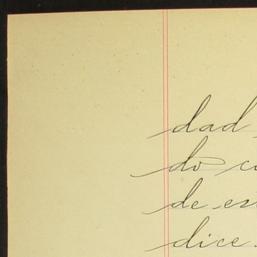 dad
do c
de es
dice.